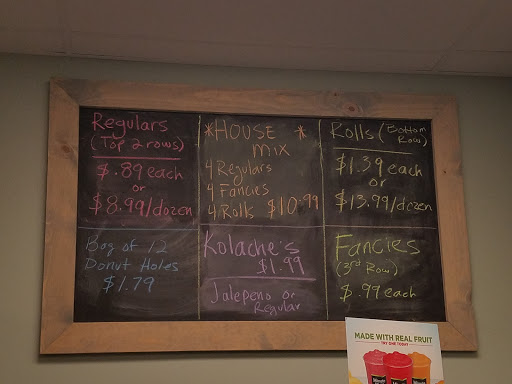 Regulars
(Top 2 rows)
$.89 each
or
$8.99/dozen
*HOUSE *
mix
4 Regulars
4 Fancies
4 Rolls $10.99
Rolls (Bottom
Row)
$1.39 each
or
$13.99/dozen
Bag of 12
Donut Holes
$1.79
Kolache's
$1.99
Jalepeno or
Regular
Fancies
(3rd Row)
$.99 each
MADE WITH REAL FRUIT
TRY ONE TODAY